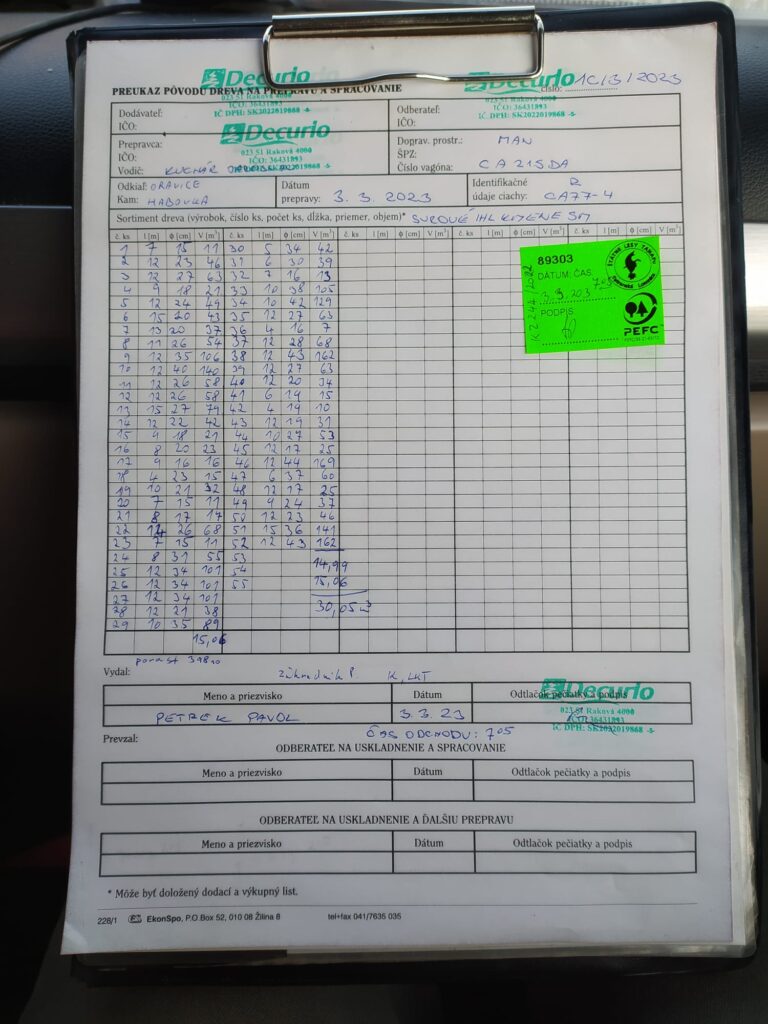 Decurio
PREUKAZ PÔVODU DREVA NA PREPRAVU A SPRACOVANIE
číslo: 10/3/2023
023 51 Raková 4000
IČO: 36431893
IČ DPH: SK2022019868
Dodávateľ:
IČO:
Odberateľ:
IČO:
Decurio
023 51 Raková 4000
IČO: 36431893
IČ DPH: SK2022019868
Prepravca:
IČO:
Vodič: KUCHÁR
Doprav. prostr.: MAN
ŠPZ:
Číslo vagóna: CA215DA
Odkiaľ: ORAVICE
Kam: HABOVKA
Dátum prepravy: 3. 3. 2023
Identifikačné údaje ciachy: CA77-4
Sortiment dreva (výrobok, číslo ks, počet ks, dĺžka, priemer, objem)* SUROVÉ IHL KMENE SM
č. ks l [m] φ [cm] V [m³] č. ks l [m] φ [cm] V [m³] č. ks l [m] φ [cm] V [m³] č. ks l [m] φ [cm] V [m³] č. ks l [m] φ [cm] V [m³]
1 7 15 11 30 5 34 42
2 12 23 46 31 6 30 39
3 12 27 63 32 7 16 13
4 9 18 21 33 10 38 105
5 12 24 49 34 10 42 129
6 15 20 43 35 12 27 63
7 13 20 37 36 4 16 7
8 11 26 54 37 12 28 68
9 12 35 106 38 12 43 162
10 12 40 140 39 12 27 63
11 12 26 58 40 12 20 34
12 12 26 58 41 6 19 15
13 15 27 79 42 4 19 10
14 12 22 42 43 12 19 31
15 9 18 21 44 10 27 53
16 8 20 23 45 12 17 25
17 9 16 16 46 12 44 169
18 4 23 15 47 6 37 60
19 10 21 32 48 12 17 25
20 7 15 11 49 9 24 37
21 8 17 17 50 12 23 46
22 14 26 68 51 15 36 141
23 7 15 11 52 12 43 162
24 8 31 55 53
25 12 34 101 54 14,99
26 12 34 101 55 15,06
27 12 34 101
28 12 21 38 30,05 m³
29 10 35 89
15,06
89303
DÁTUM, ČAS.
3.3.203 7 05
PODPIS
ŠTÁTNE LESY TANAPU
PEFC
porast 398
Vydal: K, LKT
Meno a priezvisko Dátum Odtlačok pečiatky a podpis
Decurio
023 51 Raková 4000
IČO: 36431893
IČ DPH: SK2022019868
PETREK PAVOL 3.3.23
Prevzal: ČAS ODCHODU: 7 05
ODBERATEĽ NA USKLADNENIE A SPRACOVANIE
Meno a priezvisko Dátum Odtlačok pečiatky a podpis
ODBERATEĽ NA USKLADNENIE A ĎALŠIU PREPRAVU
Meno a priezvisko Dátum Odtlačok pečiatky a podpis
* Môže byť doložený dodací a výkupný list.
228/1 EkonSpo, P.O.Box 52, 010 08 Žilina 8 tel+fax 041/7635 035